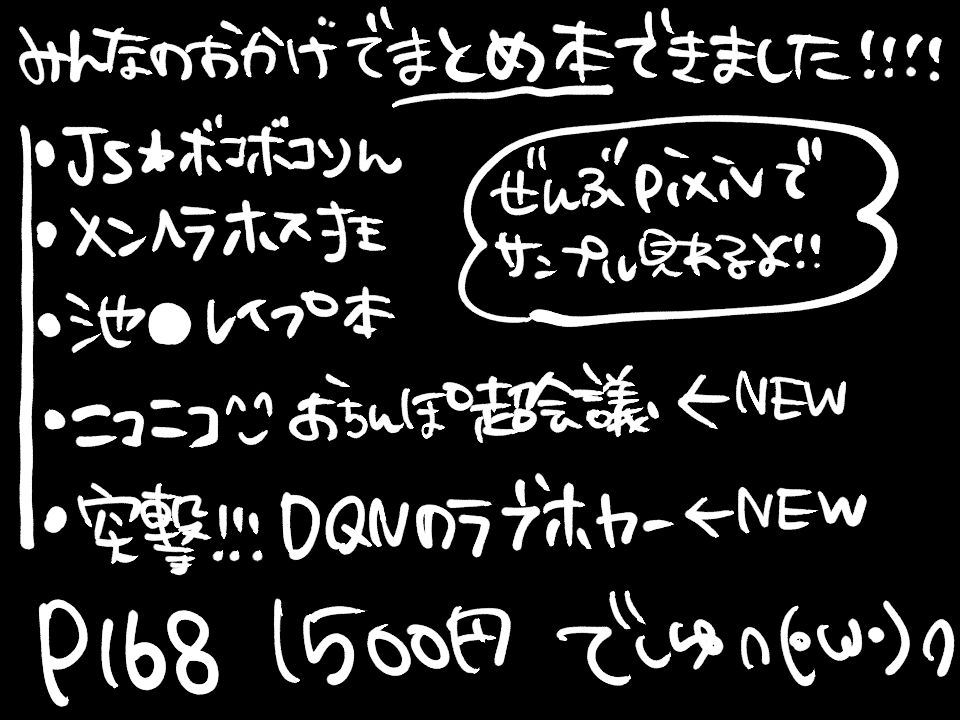 みんなのおかげでまとめ本できました!!!!
・JS★ボコボコりん
・メンヘラホス狂
ぜんぶpixivで
サンプル見れるよ!!
・池●レイプ本
・ニコニコ^^ おちんぽ超会議 ←NEW
・突撃!!! DQNのラブホカー ←NEW
P168 1500円 でしゅ∩(・ω・)∩